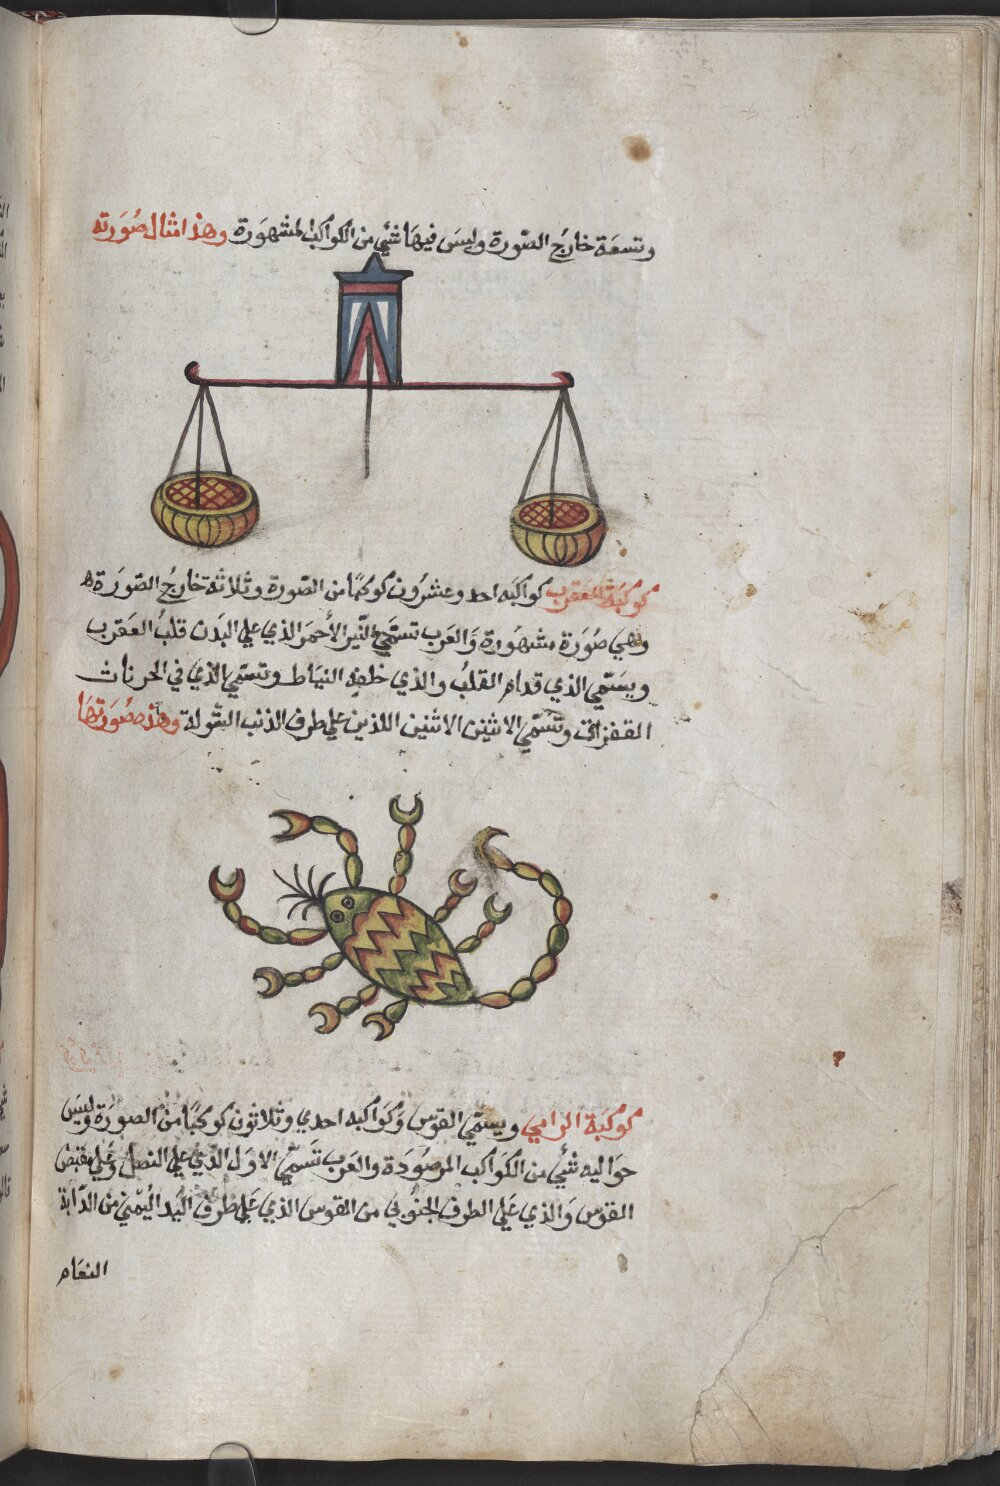 وتسعة خارج الصّورة وليس فيها شيء من الكواكب المشهورة وهذا مثال صُورَته
كوكبة العقرب كواكبه احد وعشرون كوكبًا من الصّورة وثلاثة خارجُ الصّورَة
وهي صُورَة مشهُورة وَالعَرب تسمّي النّير الأحمَر الذي علي البَدن قلبُ العَقرب
ويسَمّي الذي قدام القلبُ والذي خلفه النياط وتسمّي الذي في الخرزات
القفزات وتسُمّي الاثنين الاثنين اللذين علي طرف الذنب الشّولة وهذه صُورَتهَا
كوكبَة الرامي ويسَمّي القوّس وَكوَاكبه احدي وثلاثون كوكبًا من الصورَة وليسَ
حوَاليه شئ من الكوَاكب المرصُودَة والعَرب تسَمّي الاوّل الذي علي النصل وَعَلي مقبض
القوّس وَالذي عَلي الطرف الجنُوبي من القوس الذي عَلي طرف اليَد اليُمني من الدّابة
النعَام